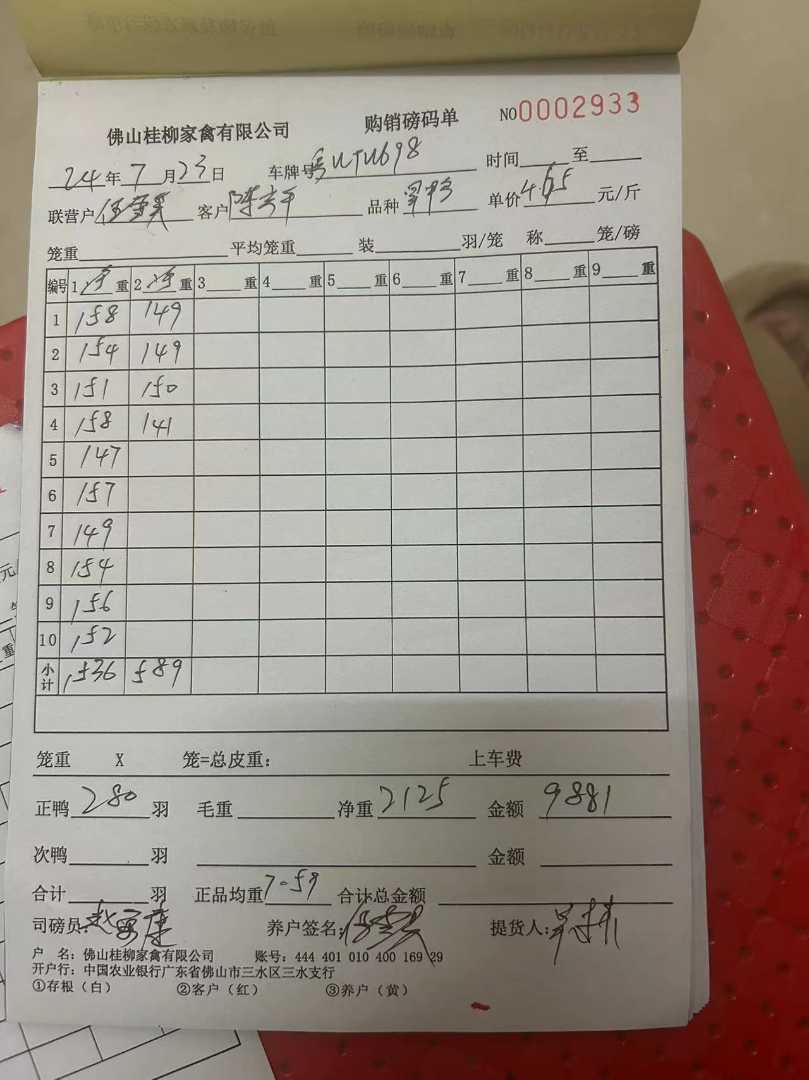 佛山桂柳家禽有限公司 购销磅码单 NO0002933
24年7月23日 车牌号 时间 至
联营户 客户 品种 单价4.65元/斤
笼重 平均笼重 装 羽/笼 称 笼/磅
编号 1 净 重 2 净 重 3 重 4 重 5 重 6 重 7 重 8 重 9 重
1 158 149
2 154 149
3 151 150
4 158 141
5 147
6 157
7 149
8 154
9 156
10 152
小计 1536 589
笼重 X 笼=总皮重: 上车费
正鸭280羽 毛重 净重2125 金额9881
次鸭 羽 金额
合计 羽 正品均重7-59 合计总金额
司磅员: 养户签名: 提货人:
户 名: 佛山桂柳家禽有限公司 账号: 444 401 010 400 169 29
开户行: 中国农业银行广东省佛山市三水区三水支行
①存根（白） ②客户（红） ③养户（黄）